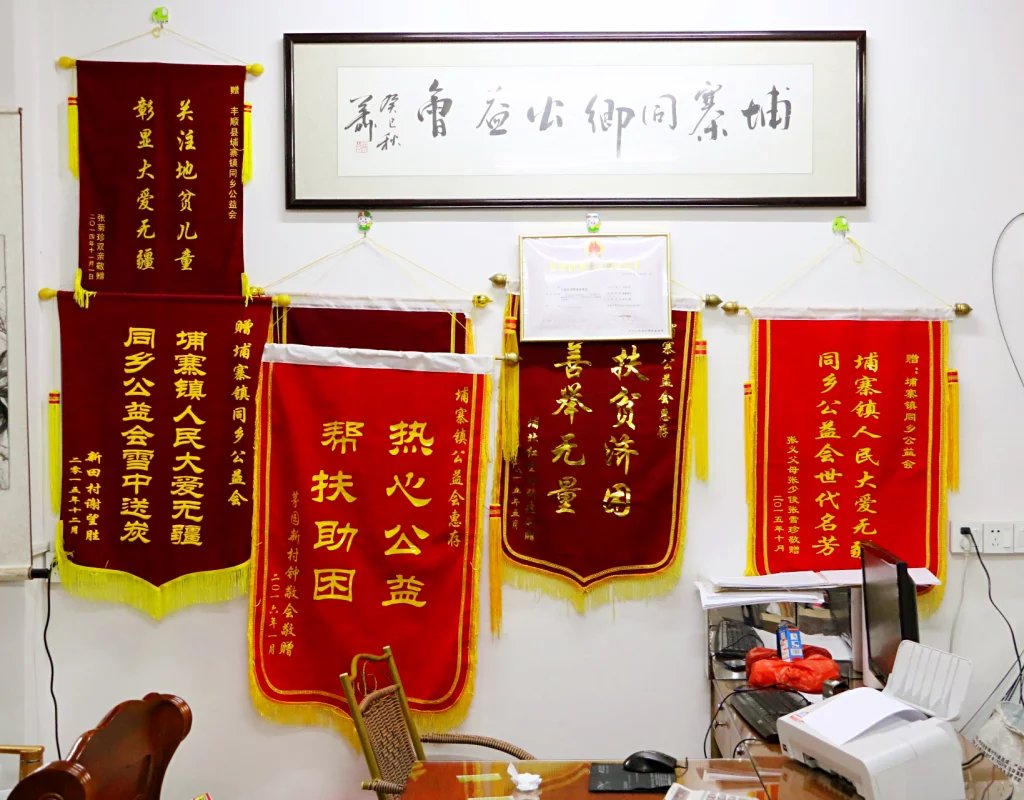 埔寨同鄉公益會
癸巳秋
赠 丰顺县埔寨镇同乡公益会
关注地贫儿童
彰显大爱无疆
张菊珍双亲敬赠
二〇一四年十一月一日
赠埔寨镇同乡公益会
埔寨镇人民大爱无疆
同乡公益会雪中送炭
新田村谢望胜
二零一五年十二月
埔寨镇公益会惠存
热心公益
帮扶助困
茅园新村钟敬会敬赠
二〇一六年一月
寨公益会惠存
扶贫济困
善举无量
赠:埔寨镇同乡公益会
埔寨镇人民大爱无疆
同乡公益会世代名芳
张义父母张少俊张雪珍敬赠
二〇一五年十月